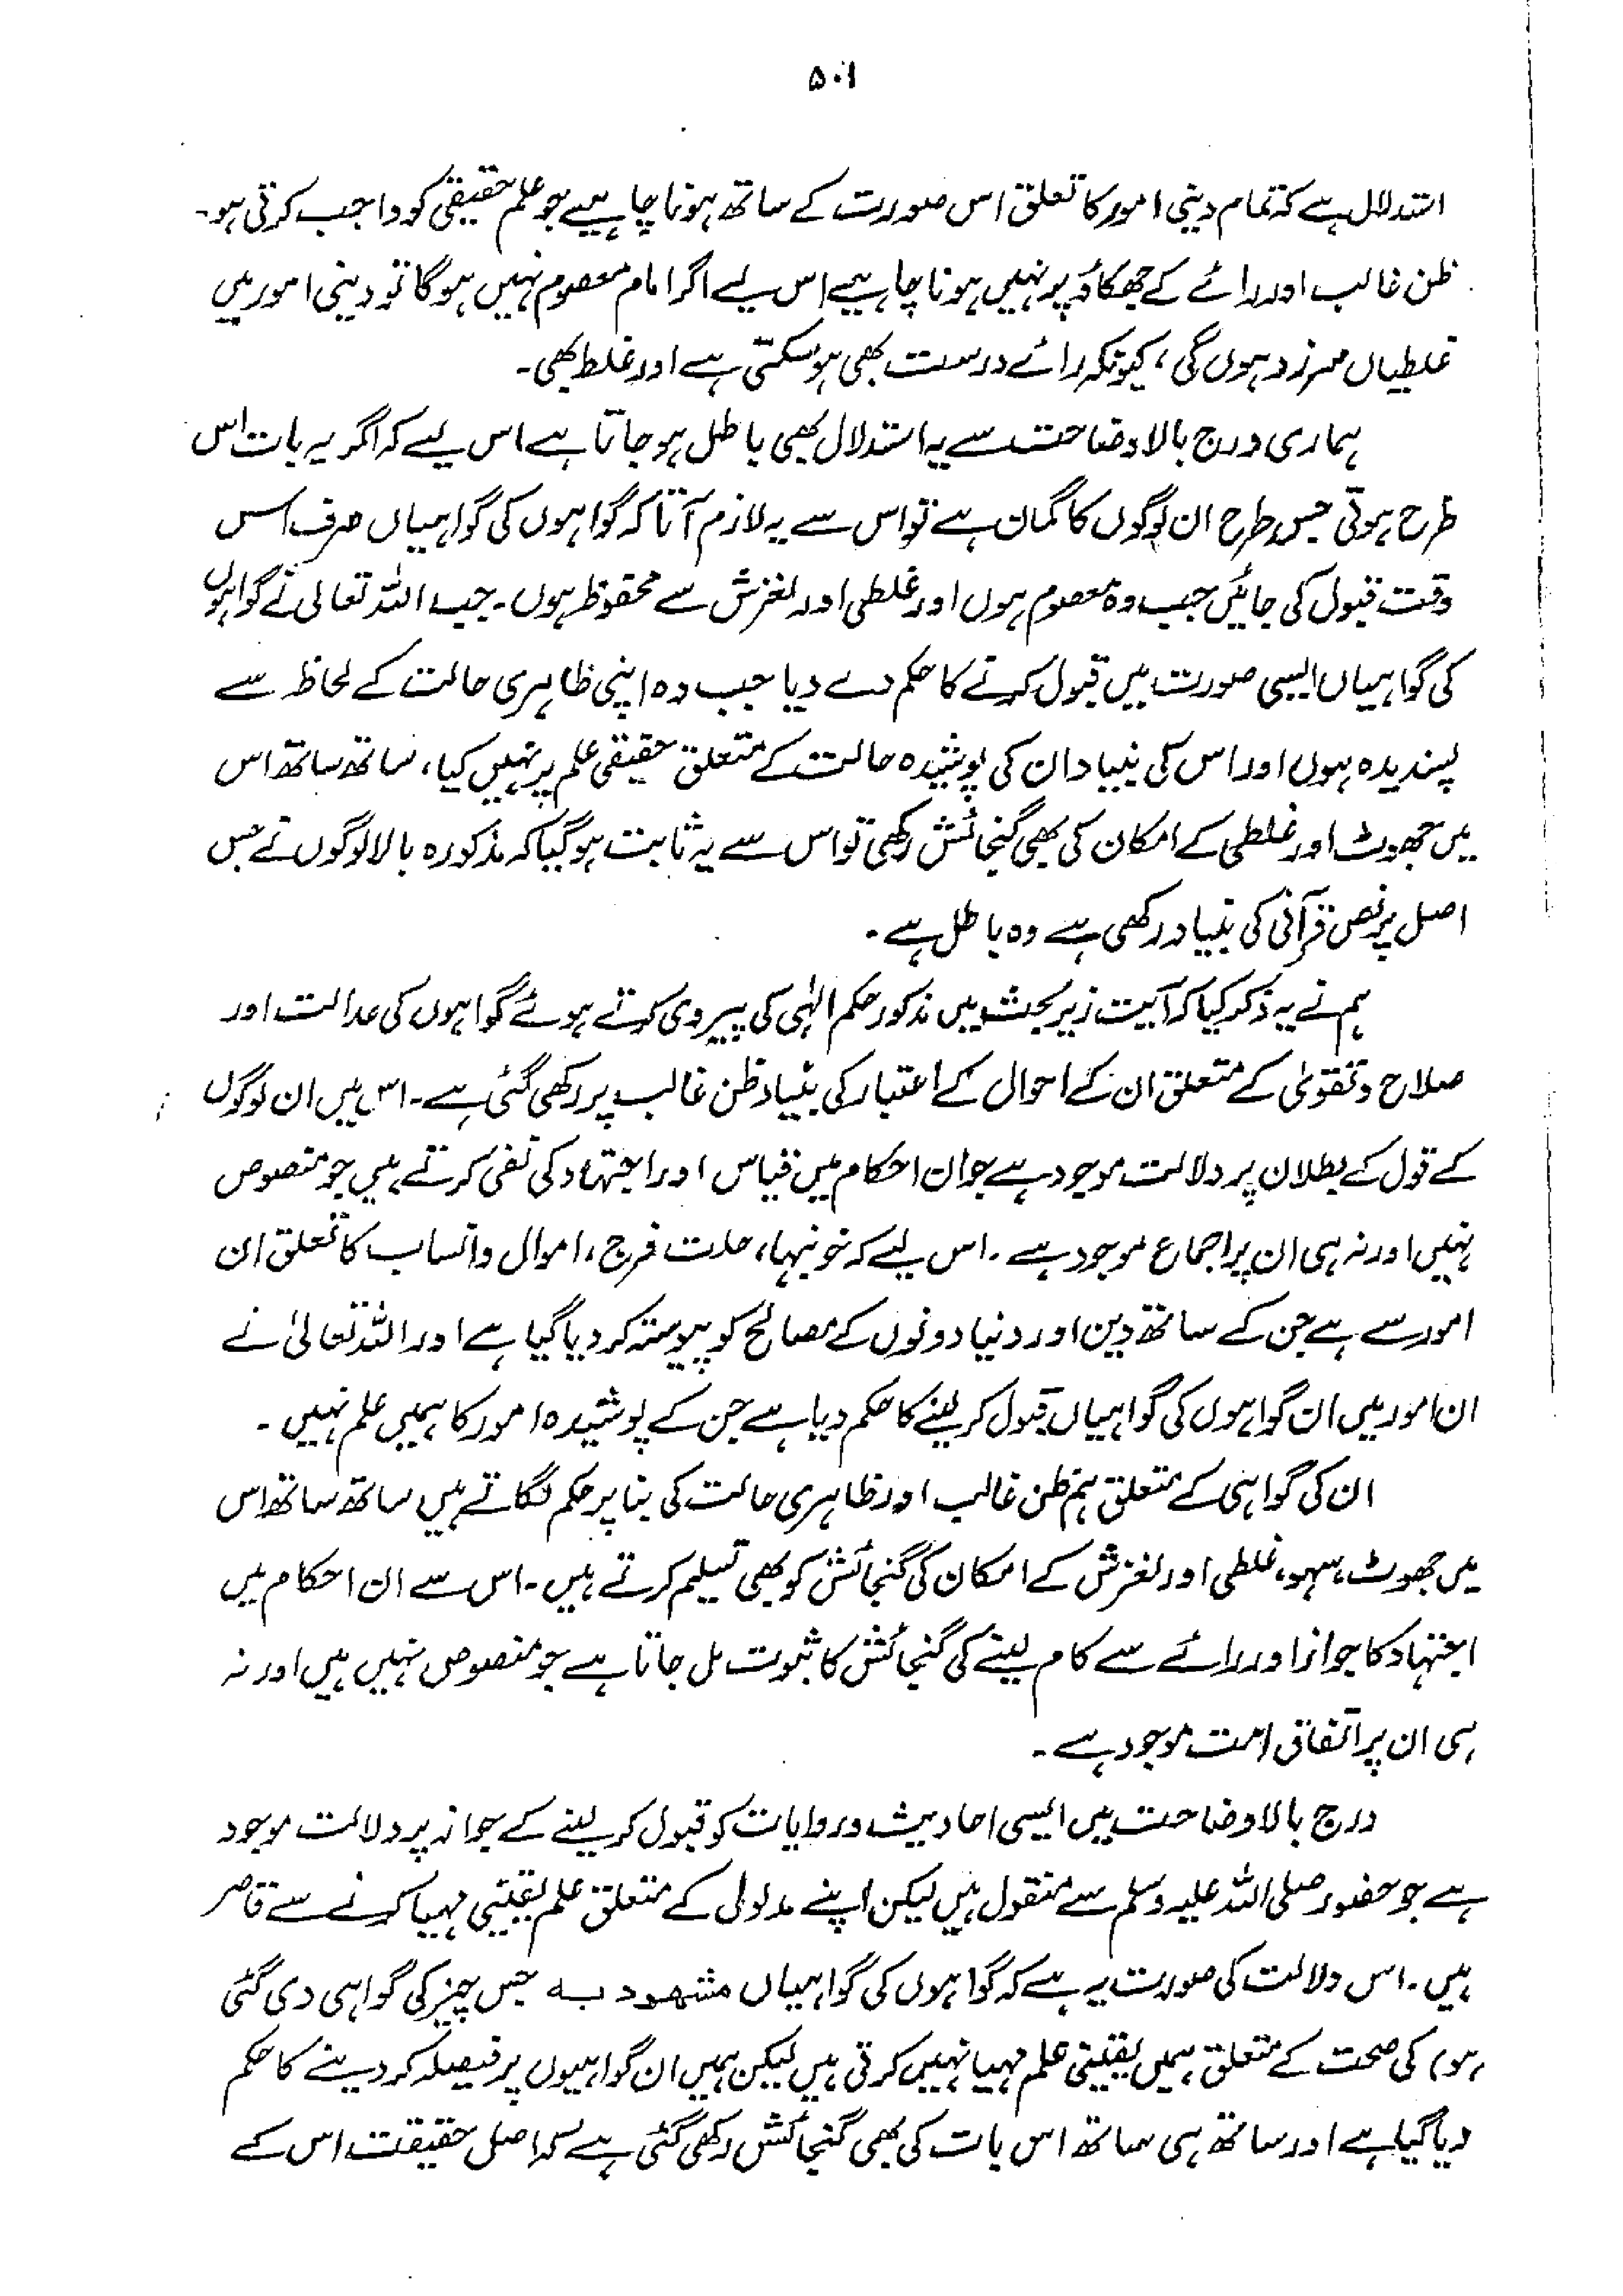 ۵۰۱
استدلال ہے کہ تمام دینی امور کا تعلق اس صورت کے ساتھ ہونا چاہیے جو علم حقیقی کو واجب کرتی ہو۔
ظن غالب اور رائے کے جھکاؤ پر نہیں ہونا چاہیے اس لیے اگر امام معصوم نہیں ہوگا تو دینی امور میں
غلطیاں سرزد ہوں گی، کیونکہ رائے درست بھی ہو سکتی ہے اور غلط بھی۔
ہماری درج بالا وضاحت سے یہ استدلال بھی باطل ہو جاتا ہے اس لیے کہ اگر یہ بات اس
طرح ہوتی جس طرح ان لوگوں کا گمان ہے تو اس سے یہ لازم آتا کہ گواہوں کی گواہیاں صرف اس
وقت قبول کی جائیں جب وہ معصوم ہوں اور غلطی اور لغزش سے محفوظ ہوں۔ جب اللہ تعالی نے گواہوں
کی گواہیاں ایسی صورت میں قبول کرنے کا حکم دے دیا جب وہ اپنی ظاہری حالت کے لحاظ سے
پسندیدہ ہوں اور اس کی بنیاد ان کی پوشیدہ حالت کے متعلق حقیقی علم پر نہیں کیا، ساتھ ساتھ اس
میں جھوٹ اور غلطی کے امکان کی بھی گنجائش رکھی تو اس سے یہ ثابت ہو گیا کہ مذکورہ بالا لوگوں نے جس
اصل پر نص قرآنی کی بنیاد رکھی ہے وہ باطل ہے۔
ہم نے یہ ذکر کیا کہ آیت زیر بحث میں مذکور حکم الٰہی کی پیروی کرتے ہوئے گواہوں کی عدالت اور
صلاح و تقویٰ کے متعلق ان کے احوال کے اعتبار کی بنیاد ظن غالب پر رکھی گئی ہے۔ اس میں ان لوگوں
کے قول کے بطلان پر دلالت موجود ہے جو ان احکام میں قیاس اور اجتہاد کی نفی کرتے ہیں جو منصوص
نہیں اور نہ ہی ان پر اجماع موجود ہے۔ اس لیے کہ خونبہا، حلت فرج، اموال و انساب کا تعلق ان
امور سے ہے جن کے ساتھ دین اور دنیا دونوں کے مصالح کو پیوستہ کر دیا گیا ہے اور اللہ تعالیٰ نے
ان امور میں ان گواہوں کی گواہیاں قبول کر لینے کا حکم دیا ہے جن کے پوشیدہ امور کا ہمیں علم نہیں۔
ان کی گواہی کے متعلق ہم ظن غالب اور ظاہری حالت کی بنا پر حکم لگاتے ہیں ساتھ ساتھ اس
میں جھوٹ، سہو، غلطی اور لغزش کے امکان کی گنجائش کو بھی تسلیم کرتے ہیں۔ اس سے ان احکام میں
اجتہاد کا جواز اور رائے سے کام لینے کی گنجائش کا ثبوت مل جاتا ہے جو منصوص نہیں ہیں اور نہ
ہی ان پر اتفاق امت موجود ہے۔
درج بالا وضاحت میں ایسی احادیث و روایات کو قبول کر لینے کے جواز پر دلالت موجود
ہے جو حضور صلی اللہ علیہ وسلم سے منقول ہیں لیکن اپنے مدلول کے متعلق علم یقینی مہیا کرنے سے قاصر
ہیں۔ اس دلالت کی صورت یہ ہے کہ گواہوں کی گواہیاں مشہود بہ جس چیز کی گواہی دی گئی
ہو) کی صحت کے متعلق ہمیں یقینی علم مہیا نہیں کرتی ہیں لیکن ہمیں ان گواہیوں پر فیصلہ کر دینے کا حکم
دیا گیا ہے اور ساتھ ہی ساتھ اس بات کی بھی گنجائش رکھی گئی ہے کہ اصل حقیقت اس کے